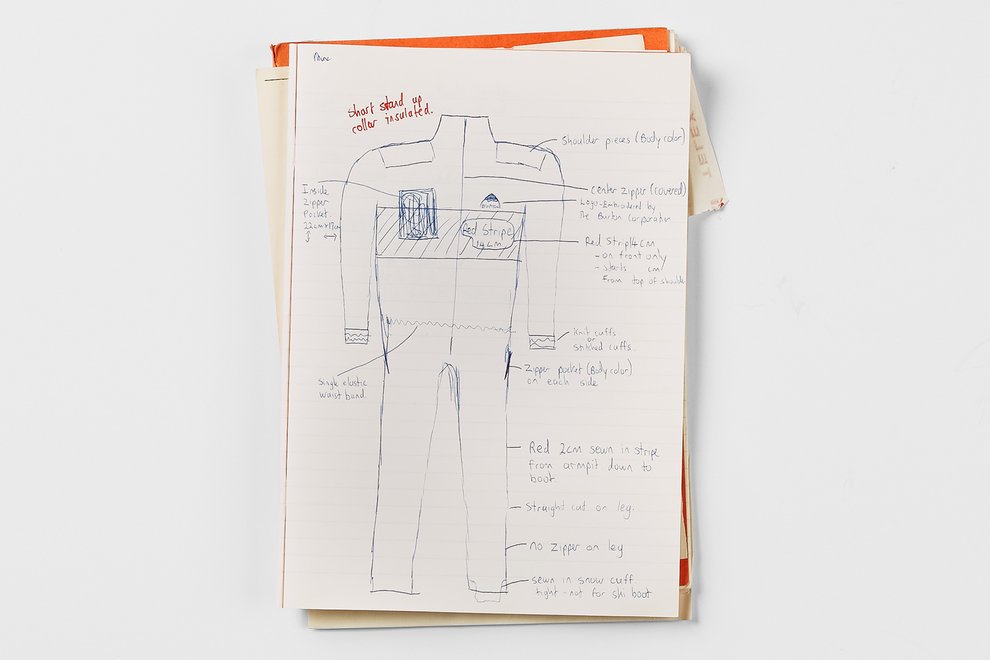 Short stand up
collar insulated.
Shoulder pieces (Body color)
Inside
Zipper
Pocket
center zipper (covered)
Logo - Embroidered by
The Burton Corporation
Red Stripe
14cm
Red Strip 14cm
- on front only
- starts cm
From top of shoulder
Knit cuffs
or
Stitched cuffs.
Zipper pocket (Body color)
on each side
Single elastic
waist band.
Red 2cm sewn in stripe
from armpit down to
boot
Straight cut on leg.
no zipper on leg
sewn in snow cuff
tight - not for ski boot
TELEX